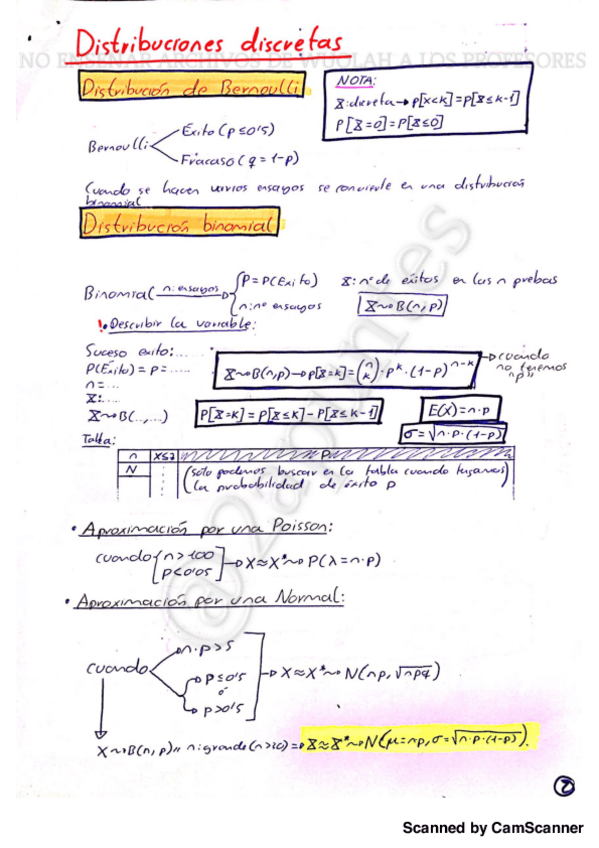 Distribuciones discretas
NO ENSEÑAR ARCHIVOS DE WUOLAH A LOS PROFESORES
Distribución de Bernoulli
NOTA:
X: discreta → P[X<k] = P[X≤k-1]
P[X=0] = P[X≤0]
Bernoulli
Éxito (p≤0'5)
Fracaso (q=1-p)
Cuando se hacen varios ensayos se convierte en una distribución
binomial
Distribución binomial
Binomial n: ensayos → { P = P(Éxito)
n: nº ensayos
X: nº de éxitos en las n prebas
X~B(n,p)
!. Describir la variable:
Suceso éxito:.....
P(Éxito) = p = .....
n = ...
X: ....
X~B(..,...)
X~B(n,p) → P[X=k] = (n k) · p^k · (1-p)^n-k
→ cuando
no tenemos
"p"
P[X=k] = P[X≤k] - P[X≤k-1]
E(X) = n·p
σ = √n·p·(1-p)
Tabla:
n X≤2 P
N
(solo podemos buscar en la tabla cuando tengamos)
(la probabilidad de éxito p
• Aproximación por una Poisson:
cuando { n>100
p<0'05 ] → X≈X*~P(λ=n·p)
• Aproximación por una Normal:
cuando
n·p>5
p≤0'5
ó
p>0'5
→ X≈X*~N(np, √npq)
X~B(n,p) n: grande (n>20) ⇒ X≈X*~N(μ=np, σ=√n·p·(1-p)).
2
@2apuntes
Scanned by CamScanner